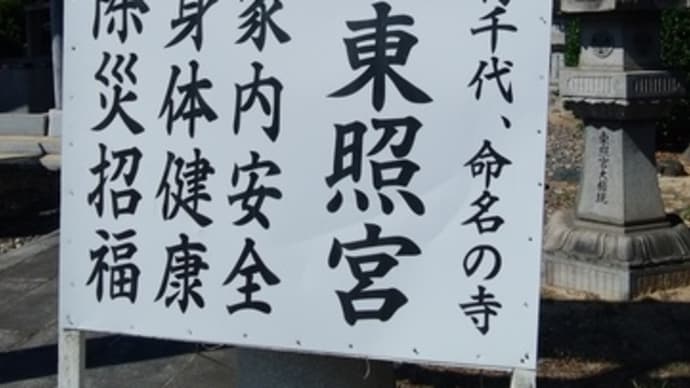 千代、命名の寺
東照宮
家内安全
身体健康
除災招福
東照宮大権現